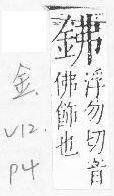 鉘
浮勿切音
佛飾也
金.
V12.
P4